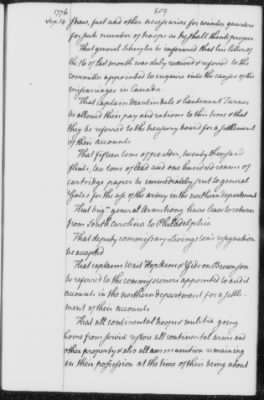 1776
Sep 14
straw, fuel and other necessaries for winter quarters
for such number of troops as they shall think proper
That general Schuyler be informed that his letter of
the 16 of last month was duly received & referred to the
committee appointed to enquire into the causes of the
miscarriages in Canada.
That captain Martindale & lieutenant Turner
be allowed their pay and rations to this time & that
they be referred to the treasury board for a settlement
of their accounts
That fifteen tons of powder, twenty thousand
flints, ten tons of lead and one hundred reams of
cartridge paper be immediately sent to general
Gates for the use of the army in the northern department
That brigr general Armstrong have leave to return
from South Carolina to Philadelphia
That deputy commissary Livingston's resignation
be accepted
That captains Wait Hopkins & Gideon Brownson
be referred to the commissioners appointed to audit
accounts in the northern department for a settle-
ment of their accounts
That all continental troops & militia going
home from service restore all continental arms and
other property & also all ammunition remaining
in their possession at the time of their being about